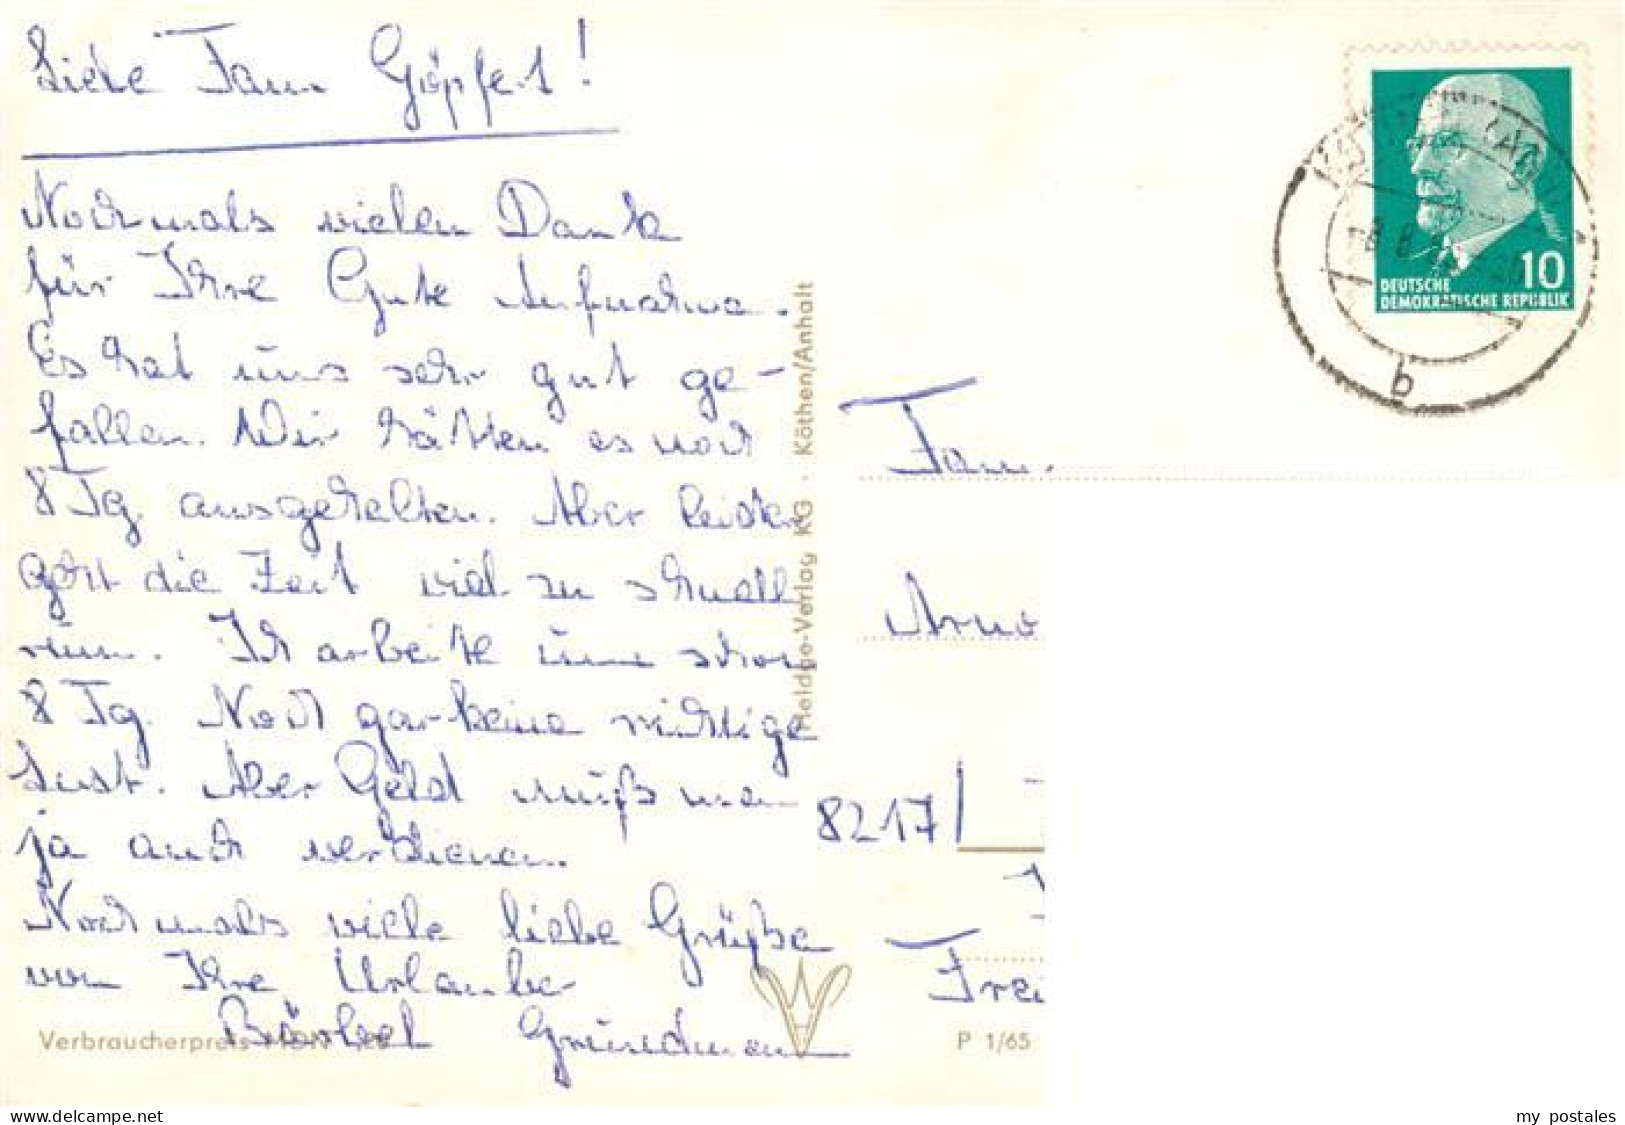 Liebe Fam. Göpfert!
Nochmals vielen Dank
für Ihre Gute Aufnahme.
Es hat uns sehr gut ge-
fallen. Wir hätten es noch
8 Tg. ausgehalten. Aber leider
geht die Zeit viel zu schnell
rum. Ich arbeite nun schon
8 Tg. Noch gar keine richtige
Lust. Aber Geld muß man
ja auch verdienen.
Nochmals viele liebe Grüße
von Ihre Urlauber
Bärbel Grundmann
Verbraucherpreis MDN
Heldge-Verlag KG · Köthen/Anhalt
P 1/65
10
DEUTSCHE
DEMOKRATISCHE REPUBLIK
b
Fam.
Arno
8217
Frei
delcampe.net
my_postales